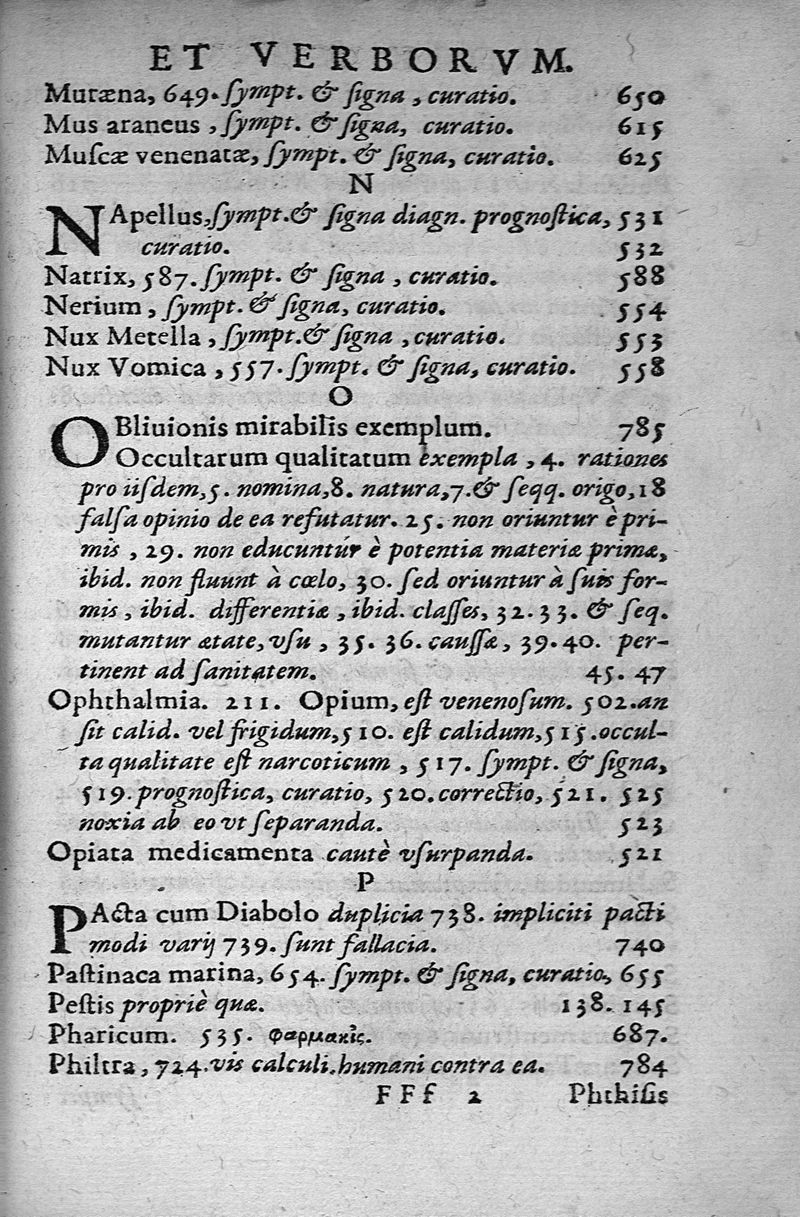 ET VERBORVM.
Muræna, 649. ſympt. & ſigna, curatio. 650
Mus araneus, ſympt. & ſigna, curatio. 615
Muſcæ venenatæ, ſympt. & ſigna, curatio. 625
N
NApellus, ſympt. & ſigna diagn. prognoſtica, 531
curatio. 532
Natrix, 587. ſympt. & ſigna, curatio. 588
Nerium, ſympt. & ſigna, curatio. 554
Nux Metella, ſympt. & ſigna, curatio. 553
Nux Vomica, 557. ſympt. & ſigna, curatio. 558
O
OBliuionis mirabilis exemplum. 785
Occultarum qualitatum exempla, 4. rationes
pro iiſdem, 5. nomina, 8. natura, 7. & ſeqq. origo, 18
falſa opinio de ea refutatur. 25. non oriuntur è pri-
mis, 29. non educuntur è potentia materiæ primæ,
ibid. non fluunt à cœlo, 30. ſed oriuntur à ſuis for-
mis, ibid. differentiæ, ibid. claſſes, 32. 33. & ſeq.
mutantur ætate, vſu, 35. 36. cauſſæ, 39. 40. per-
tinent ad ſanitatem. 45. 47
Ophthalmia. 211. Opium, eſt venenoſum. 502. an
ſit calid. vel frigidum, 510. eſt calidum, 515. occul-
ta qualitate eſt narcoticum, 517. ſympt. & ſigna,
519. prognoſtica, curatio, 520. correctio, 521. 525
noxia ab eo vt ſeparanda. 523
Opiata medicamenta cautè vſurpanda. 521
P
PActa cum Diabolo duplicia 738. impliciti pacti
modi varij 739. ſunt fallacia. 740
Paſtinaca marina, 654. ſympt. & ſigna, curatio, 655
Peſtis propriè quæ. 138. 145
Pharicum. 535. φαρμακὶς. 687.
Philtra, 724. vis calculi humani contra ea. 784
FFf 2 Phthiſis